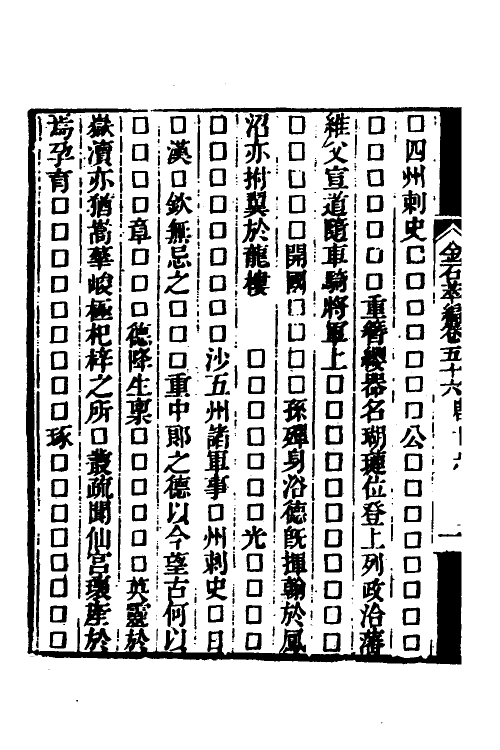 金石萃編卷五十六 唐十六 一
□四州刺史□□□□□□□公□□□□□□□□
□□□□□□□重簪纓器名瑚璉位登上列政治藩
維父宣道隨車騎將軍上□□□□□□□□□□□
□□□□□開國□□□□孫殫身浴德既揮翰於鳳
沼亦拊翼於龍樓　　□□□□□□□光□□□□
□□□□□□□□□沙五州諸軍事□州刺史□日
□漢□欽無忌之□□□重中郎之德以今望古何以
□□□□章□□□德降生稟□□□□□□英靈於
嶽瀆亦猶嵩華峻極杞梓之所□叢疏聞仙宮瓌産於
焉孕育□□□□□□□□□琢□□□□□□□□